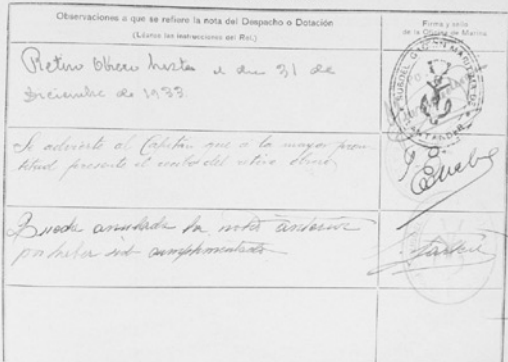 Observaciones a que se refiere la nota del Despacho o Dotación
(Léanse las instrucciones del Rol.)
Firma y sello
de la Oficina de Marina
Retiro Obrero hasta el dia 31 de
Diciembre de 1933.
SUBDELEGACION MARITIMA DE
SANTANDER
Se advierte al Capitán que a la mayor pron
titud presente el recibo del retiro obrero
P.O.
Queda anulada la nota anterior
por haber sido cumplimentada